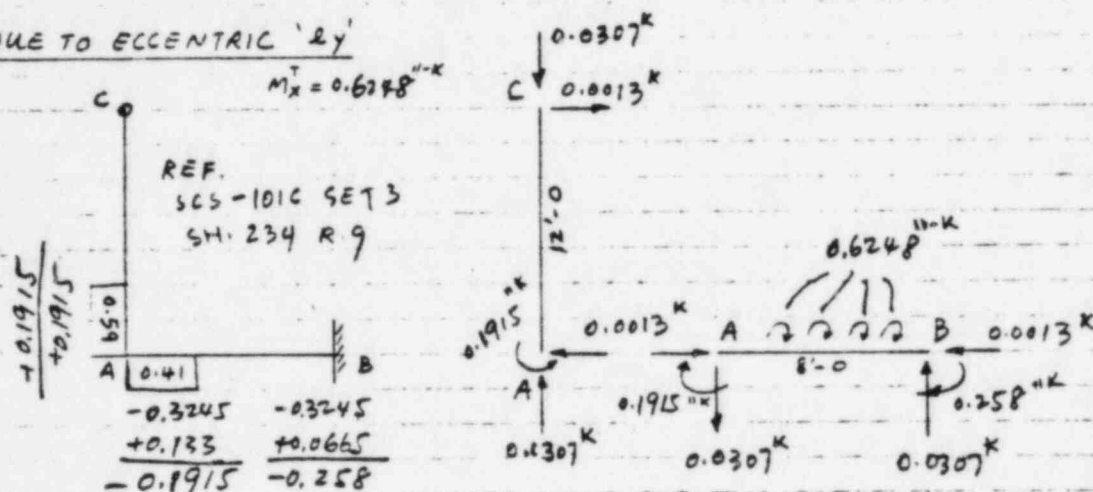 DUE TO ECCENTRIC 'ey'
M_x^T = 0.6248"-K
C
REF.
SCS-101C SET 3
SH. 234 R.9
+0.1915
+0.1915
0.59
A
0.41
B
-0.3245 -0.3245
+0.133 +0.0665
-0.1915 -0.258
0.0307K
C 0.0013K
12'-0
0.1915"K
A
0.0307K
0.6248"-K
0.0013K A B 0.0013K
8'-0
0.1915"K 0.258"K
0.0307K 0.0307K